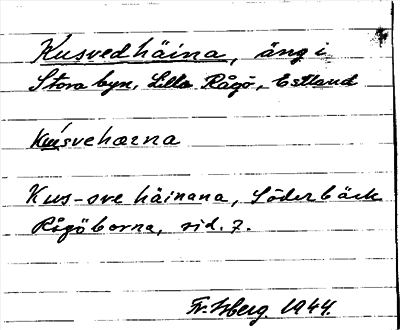 Kusvedhäina, äng i
Stora byn, Lilla Rågö, Estland
Kusvehæina
Kus-sve häinana, Söderbäck
Rågöborna, sid. 7.
Fr. Isberg 1944.